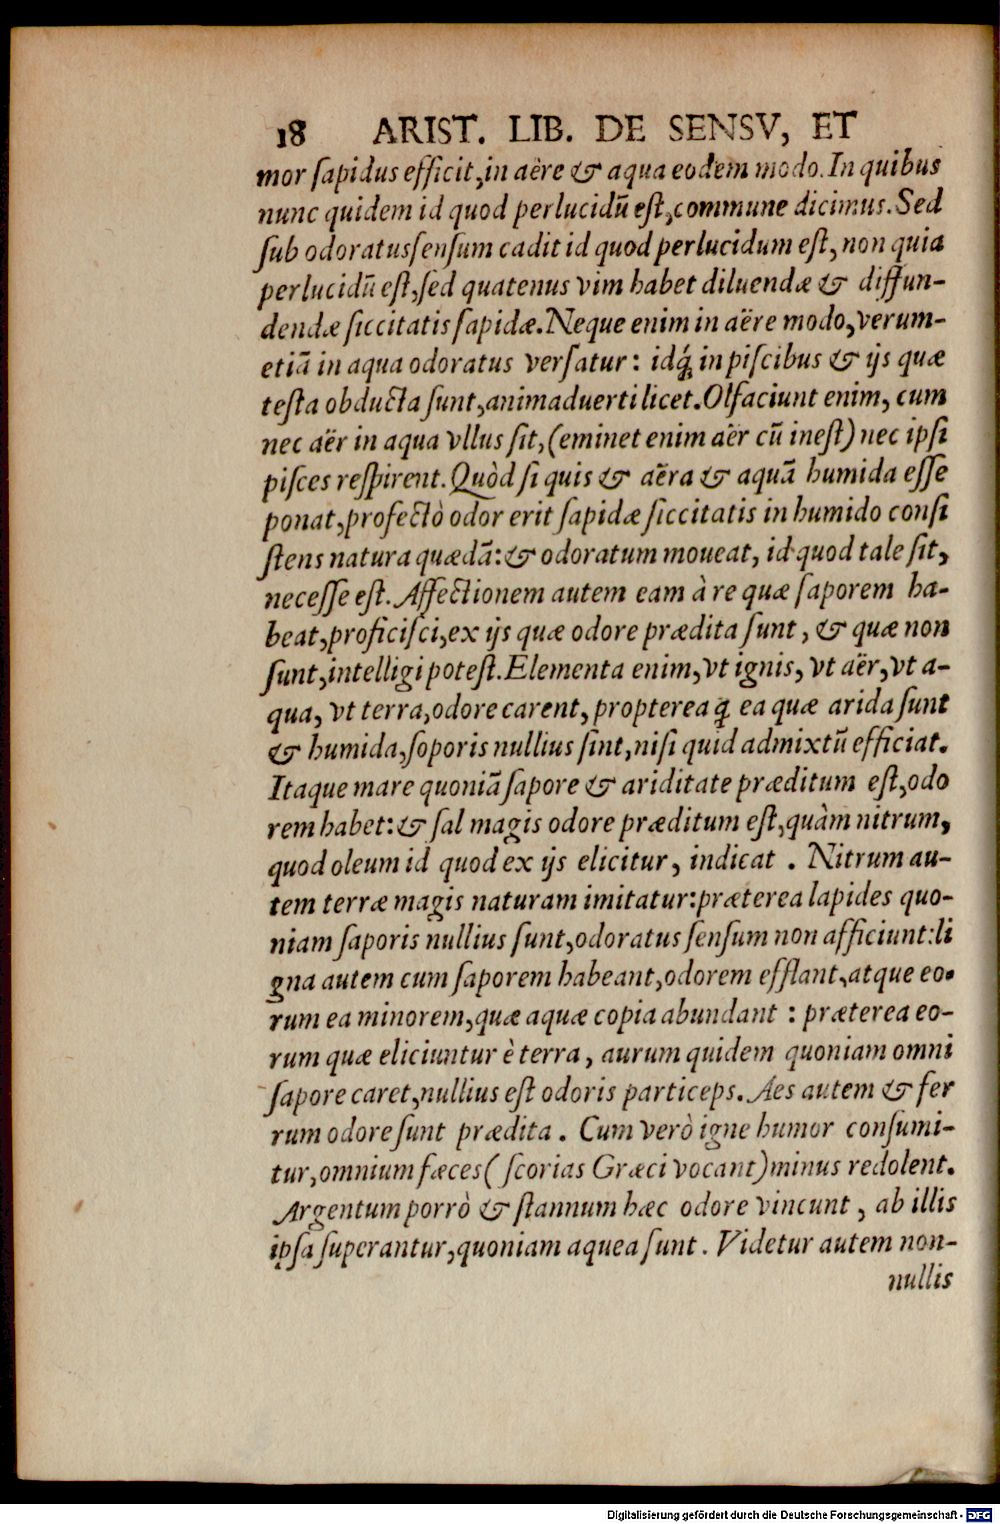 18 ARIST. LIB. DE SENSV, ET
mor ſapidus efficit, in aëre & aqua eodem modo. In quibus
nunc quidem id quod perlucidũ eſt, commune dicimus. Sed
ſub odoratus ſenſum cadit id quod perlucidum eſt, non quia
perlucidũ eſt, ſed quatenus vim habet diluendæ & diffun-
dendæ ſiccitatis ſapidæ. Neque enim in aëre modo, verum-
etiã in aqua odoratus verſatur: idq́; in piſcibus & ijs quæ
teſta obducta ſunt, animaduerti licet. Olfaciunt enim, cum
nec aër in aqua vllus ſit, (eminet enim aër cũ ineſt) nec ipſi
piſces reſpirent. Quòd ſi quis & aëra & aquã humida eſſe
ponat, profectò odor erit ſapidæ ſiccitatis in humido conſi
ſtens natura quædã: & odoratum moueat, id quod tale ſit,
neceſſe eſt. Affectionem autem eam à re quæ ſaporem ha-
beat, proficiſci, ex ijs quæ odore prædita ſunt, & quæ non
ſunt, intelligi poteſt. Elementa enim, vt ignis, vt aër, vt a-
qua, vt terra, odore carent, propterea q́; ea quæ arida ſunt
& humida, ſoporis nullius ſint, niſi quid admixtũ efficiat.
Itaque mare quoniã ſapore & ariditate præditum eſt, odo
rem habet: & ſal magis odore præditum eſt, quàm nitrum,
quod oleum id quod ex ijs elicitur, indicat. Nitrum au-
tem terræ magis naturam imitatur: præterea lapides quo-
niam ſaporis nullius ſunt, odoratus ſenſum non afficiunt: li
gna autem cum ſaporem habeant, odorem efflant, atque eo-
rum ea minorem, quæ aquæ copia abundant: præterea eo-
rum quæ eliciuntur è terra, aurum quidem quoniam omni
ſapore caret, nullius eſt odoris particeps. Aes autem & fer
rum odore ſunt prædita. Cum verò igne humor conſumi-
tur, omnium fæces (ſcorias Græci vocant) minus redolent.
Argentum porrò & ſtannum hæc odore vincunt, ab illis
ipſa ſuperantur, quoniam aquea ſunt. Videtur autem non-
nullis
Digitalisierung gefördert durch die Deutsche Forschungsgemeinschaft - DFG